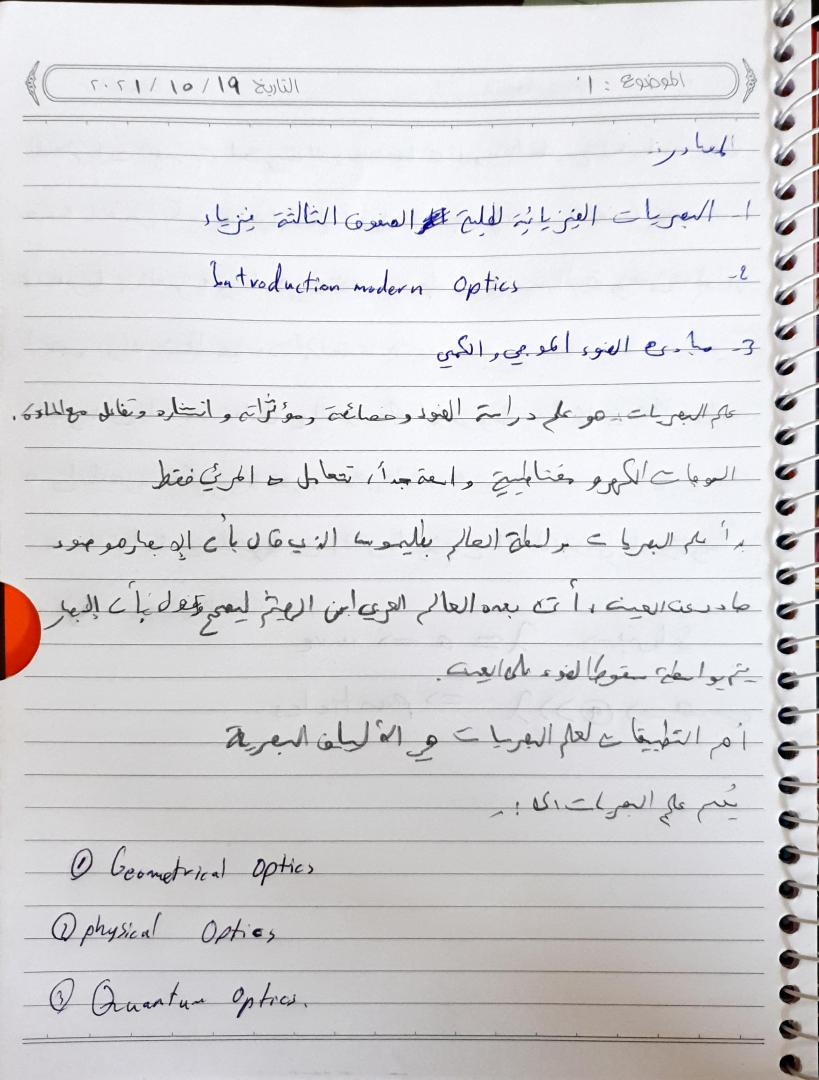 الموضوع : ١٠ التاريخ ١٩ / ١٠ / ٢٠٢١
المصادر:
1- البصريات الفيزيائية لطلبة الصفوف الثالثة فيزياء
2- Introduction modern Optics
3- مبادئ الضوء الموجي والكمي
علم البصريات: هو علم دراسة الضوء وخصائصة ومؤثراته وانتشاره وتفاعل مع المادة.
الموجات الكهرومغناطيسية واسعة جداً، تتعامل المرئي فقط
بدأ علم البصريات بواسطة العالم بطليموس الذي قال بأن الإبصار هو ضوء
صادر عن العين، أتى بعده العالم العربي ابن الهيثم ليصحح بأن إلبصار
يتم بواسطة سقوط الضوء على العين.
أهم التطبيقات لعلم البصريات هي الألياف البصرية
يُقسم علم البصريات الى :-
① Geometrical Optics
② physical Optics
③ Quantum Optics.